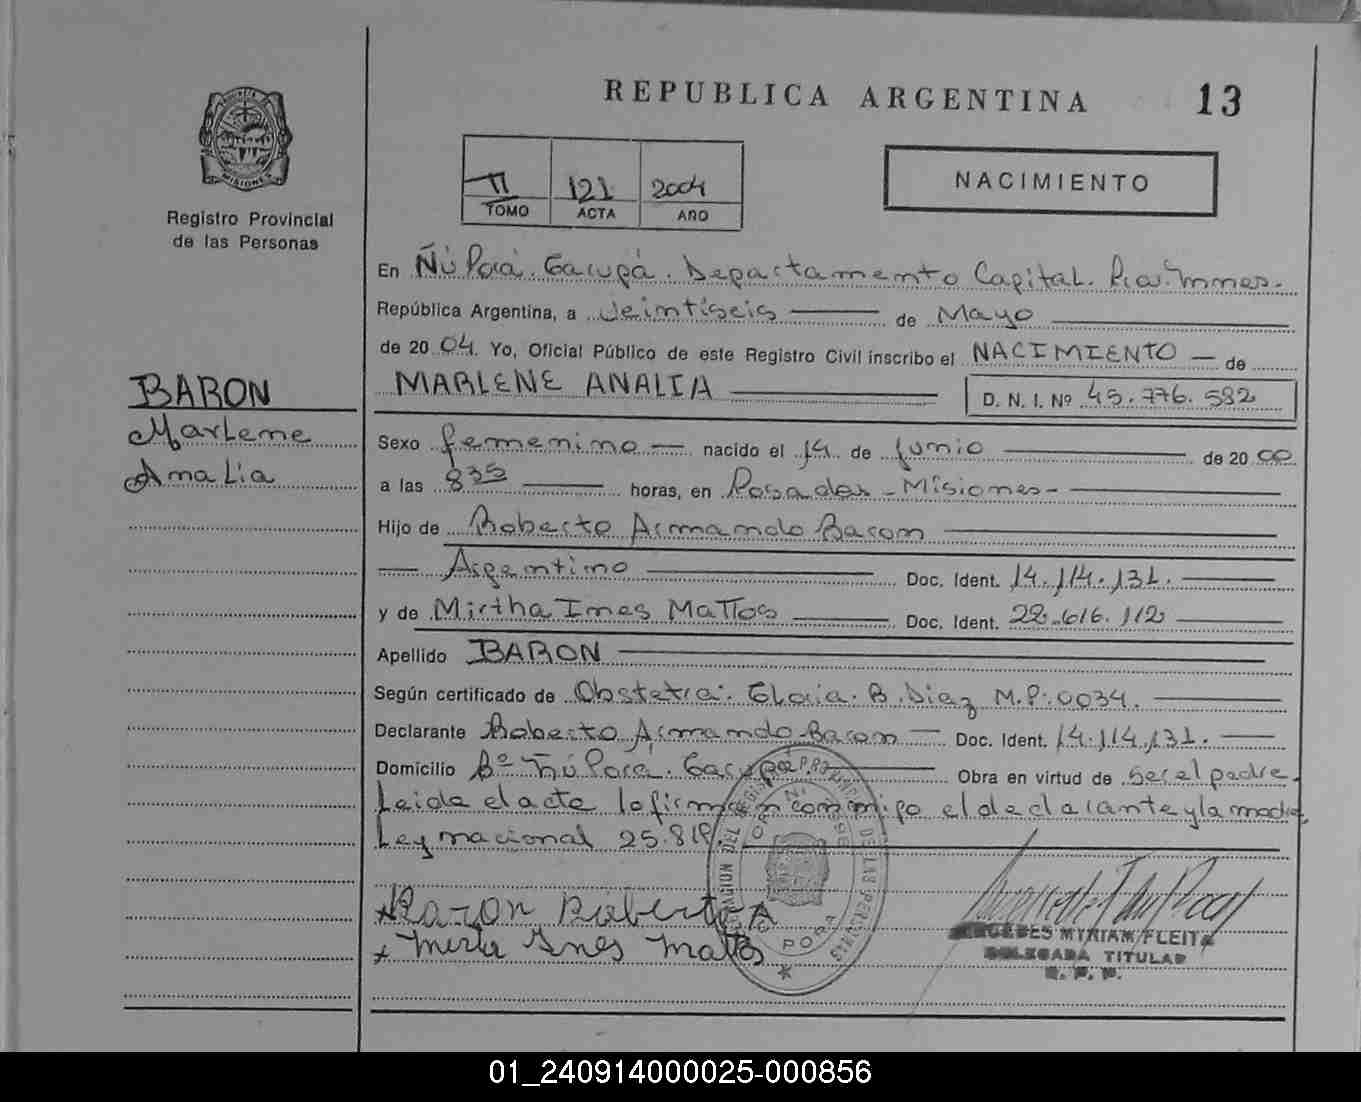 REPUBLICA ARGENTINA 13
II 121 2004
TOMO ACTA AÑO
NACIMIENTO
MISIONES
Registro Provincial
de las Personas
En Ñú Porá. Garupá. Departamento Capital. Prov. Mnes.
República Argentina, a veintiseis de Mayo
de 20 04. Yo, Oficial Público de este Registro Civil inscribo el NACIMIENTO de
MARLENE ANALIA D. N. I. Nº 45.776.592
BARON
Marlene
Analia
Sexo femenino nacido el 14 de Junio de 20 00
a las 8 35 horas, en Posadas - Misiones -
Hijo de Roberto Armando Baron
Argentino Doc. Ident. 14.114.131.
y de Mirtha Ines Mattos Doc. Ident. 22.616.112
Apellido BARON
Según certificado de Obstetra: Gloria. B. Diaz M.P: 0034.
Declarante Roberto Armando Baron Doc. Ident. 14.114.131.
Domicilio Bº Ñú Pora. Garupá. Obra en virtud de ser el padre.
Leida el acta la firman conmigo el declarante y la madre,
Ley nacional 25.819.
Baron Roberto A
Mirta Ines Mattos
PORA
MERCEDES MYRIAM FLEITA
DELEGADA TITULAR
R. P. P.
01_240914000025-000856